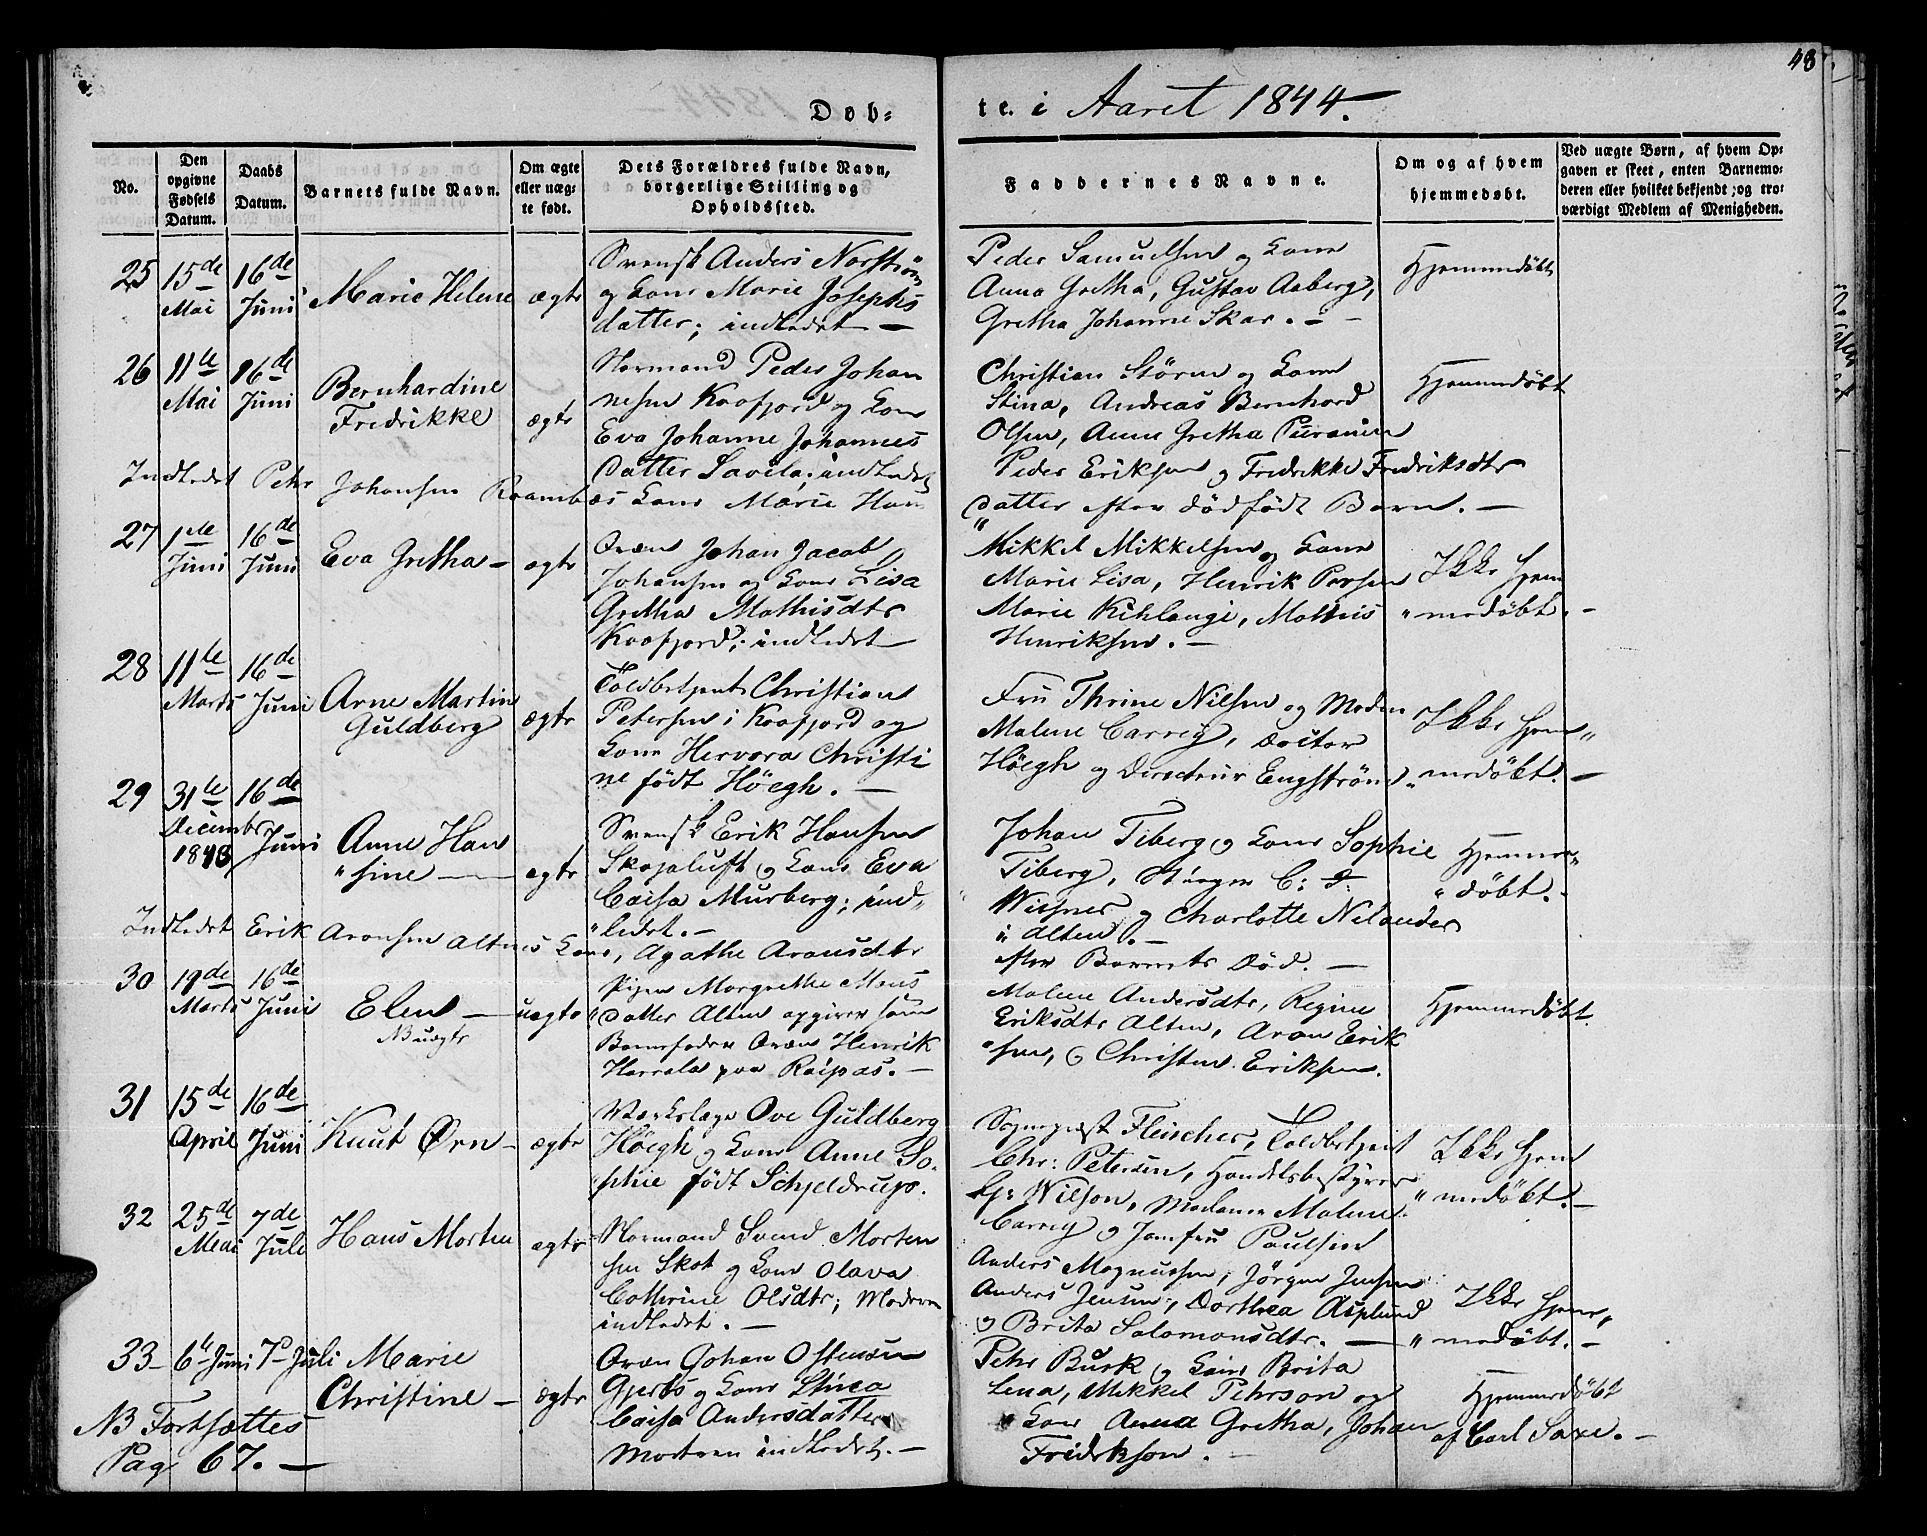 48
Døb=
te. i Aaret 1844.
No.
Den opgivne Fødsels Datum.
Daabs Datum.
Barnets fulde Navn.
Om ægte eller uægte født.
Dets Forældres fulde Navn, borgerlige Stilling og Opholdssted.
Faddernes Navne.
Om og af hvem hjemmedøbt.
Ved uægte Børn, af hvem Opgaven er skeet, enten Barnemoderen eller hvilket bekjendt, og troværdigt Medlem af Menigheden.
25 15de Mai 16de Juni Marie Helene ægte
Svensk Anders Norström
og Kone Marie Josephs
datter; indledet —
Peder Samuelsen og Kone
Anna Gretha, Gustav Aaberg,
Gretha Johanne Skar. —
Hjemmedøbt
26 11te Mai 16de Juni Bernhardine
Fredrikke ægte
Normand Peder Johan
nesen Kaafjord og Kone
Eva Johanne Johannes
datter Savila; indledet
Christian Störm og Kone
Stina, Andreas Bernhard
Olsen, Anne Gretha
Peder Eriksen og Fredrikke Fredriksdtr
Hjemmedøbt
Indledet Pehr Johansen Raambaas Kone Marie Hans
datter efter dödfödt Barn. —
27 1ste Juni 16de Juni Eva Gretha — ægte
Qvæn Johan Jacob
Johansen og Kone Lisa
Gretha Mathisdtr
Kaafjord; indledet —
Mikkel Mikkelsen og Kone
Marie Lisa, Henrik Persen
Marie Kihlangi, Mathis
Henriksen. —
Ikke hjem
" medøbt. —
28 11te Marts 16de Juni Arne Martin
Guldberg ægte
Toldbetjent Christian
Petersen i Kaafjord og
Kone Hervora Christi
ne födt Höegh. —
Fru Thrine Nilsen og Madm
Malene Carrey, Doctor
Höegh og Directeur Engström
Ikke hjem"
" medøbt. —
29 31te December 1843 16de Juni Anne Han
"sine — ægte
Svensk Erik Hansen
Skojaluft og Kone Eva
Caisa Murberg; ind"
"ledet. —
Johan Tiberg og Kone Sophie
Tiberg, Stiger C: J:
Wisner og Charlotte Nilander
i Alten. —
Hjemme"
" döbt. —
Indledet Erik Aronsen Altnes Kone, Agathe Aronsdtr
efter Barnets Död. —
30 19de Marts 16de Juni Elen — uægte
NB uægte
Pigen Margrethe Mons
datter Alten opgiver som
Barnefader Qvæn Henrik
Harrala paa Raipas. —
Malene Andersdtr, Regine
Eriksdtr Alten, Aron Erik
"sen, og Christen Eriksen.
Hjemmedøbt.
31 15de April 16de Juni Knut Ørn — ægte
Værkslæge Ove Guldberg
Höegh og Kone Anne So
phie födt Schjeldrup.
Sogneprest Fleischer, Toldbetjent
Chr: Petersen, Handelsbestyrer
Wilson, Madame Malene
Carrey og Jomfru Paulsen
Ikke hjem
" medøbt. —
32 25de Mai 7de Juli Hans Morten ægte
Normand Svend Morten
sen Skot og Kone Olava
Cathrine Olsdtr; Moderen
indledet. —
Anders Magnussen, Jörgen Jensen
Anders Jensen, Dorthea Asplund
og Brita Salomonsdtr. —
Ikke hjem"
" medøbt. —
33 — 6te Juni 7de Juli Marie
Christine — ægte
Qvæn Johan Ostensen
Gjerts og Kone Stina
Caisa Andersdatter
Moderen indledet. —
Pehr Busk og Kone Brita
Lena, Mikkel Pehrson og
Kone Anna Gretha, Johan
Fredrikson. —
Hjemmedøbt
af Carl Saxe. —
NB Fortsættes
Pag 67. —